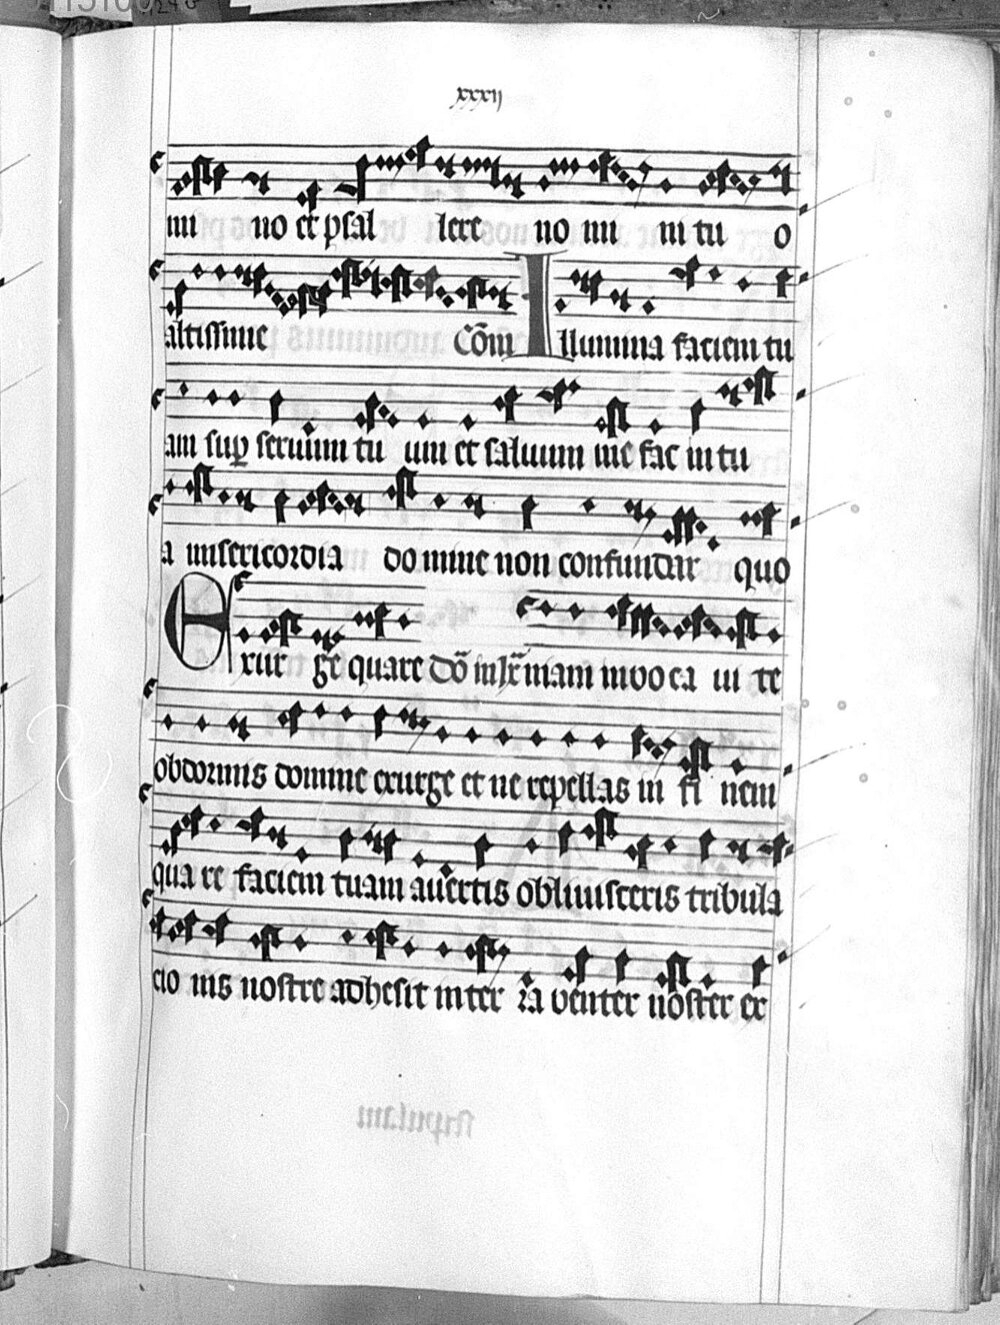 xxxij
mi no et psal lere no mi ni tu o
altissime Com̄ Illumina faciem tu
am sup seruum tu um et saluum me fac in tu
a misericordia do mine non confundar quo
Exur ge quare dō in lx̄ mam inuoca ui te
obdormis domine exurge et ne repellas in fi nem
qua re faciem tuam auertis obliuisceris tribula
cio nis nostre adhesit in ter ra venter noster ex